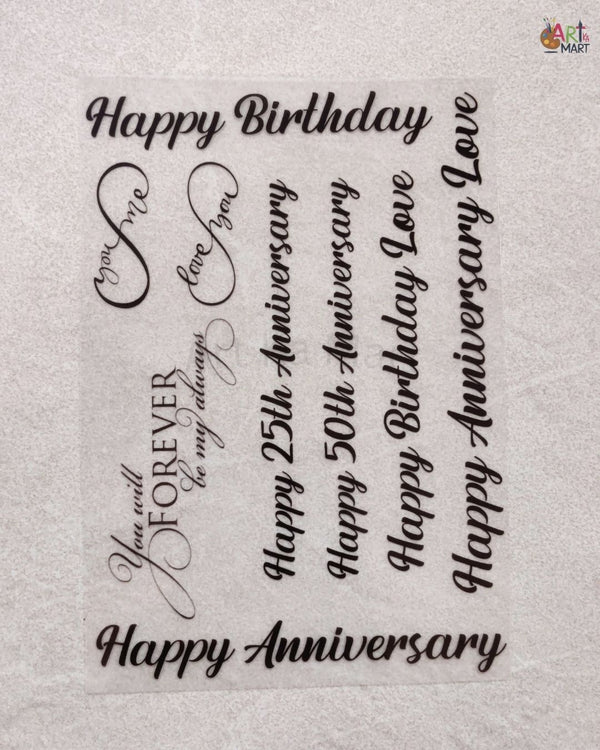 ART Ks
MART
Happy Birthday
you & me
love you
Happy 25th Anniversary
Happy 50th Anniversary
Happy Birthday Love
Happy Anniversary Love
You will
FOREVER
be my always
Happy Anniversary